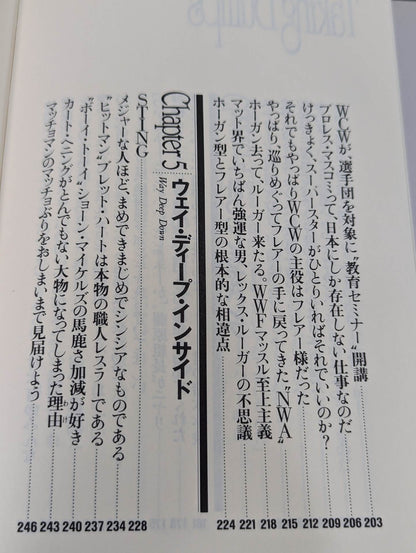 WCWが、選手団を対象に〝教育セミナー〟開講……203
プロレス・マスコミって、日本にしか存在しない仕事なのだ……206
けっきょく、スーパースターがひとりいればそれでいいのか?……209
それでもやっぱりWCWの主役はフレアー様だった……212
やっぱり、巡りめぐってフレアーの手に戻ってきた〝NWA〟……215
ホーガン去って、ルーガー来たる。WWFマッスル至上主義……218
マット界でいちばん強運な男、レックス・ルーガーの不思議……221
ホーガン型とフレアー型の根本的な相違点……224
Chapter 5 ウェイ・ディープ・インサイド
Way Deep Down
STING……228
メジャーな人ほど、まめできまじめでシンシアなものである……234
〝ヒットマン〟ブレット・ハートは本物の職人レスラーである……237
〝ボーイ・トーイ〟ショーン・マイケルズの馬鹿さ加減が好き……240
カート・ヘニングがとんでもない大物になってしまった理由……243
マッチョマンのマッチョぶりをおしまいまで見届けよう……246